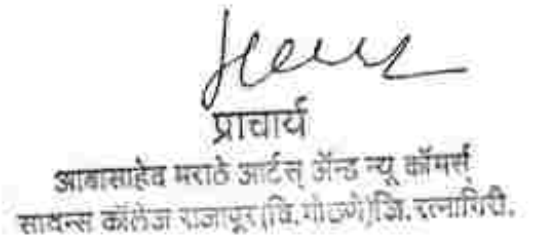 प्राचार्य
आबासाहेब मराठे आर्टस् ॲन्ड न्यू कॉमर्स
सायन्स कॉलेज राजापूर (वि. गोठणे) जि. रत्नागिरी.